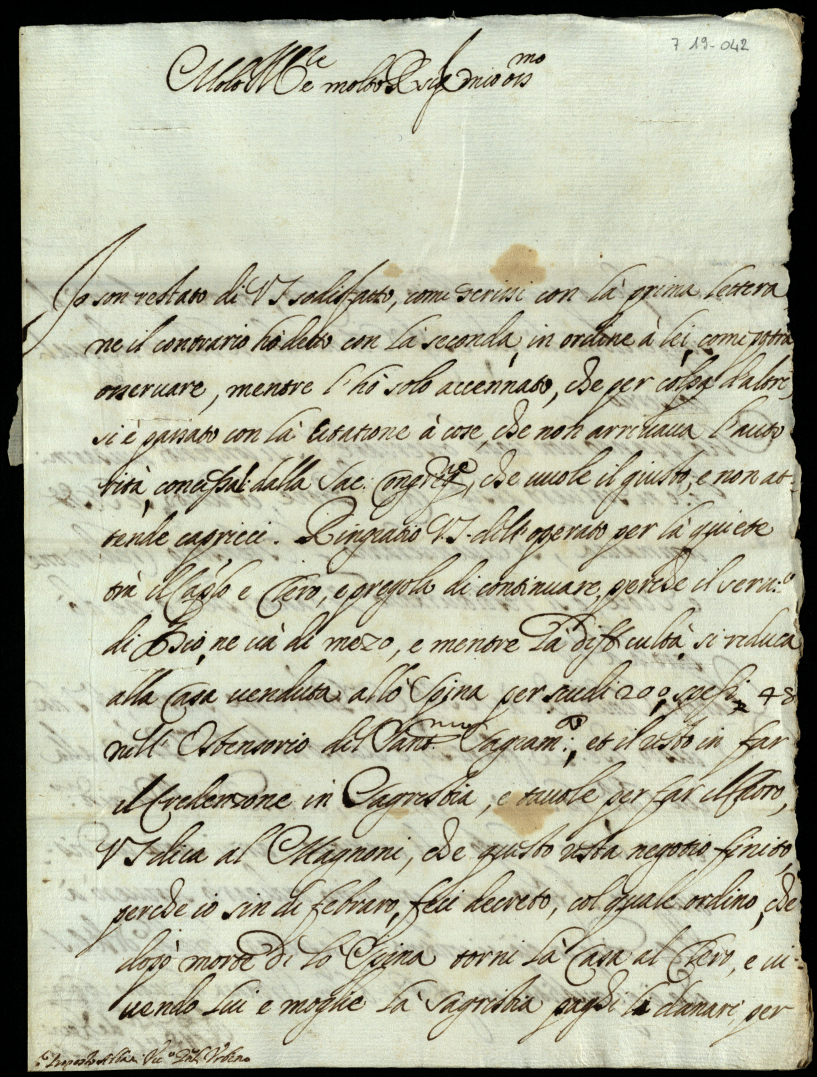 7 19-042
Molto Ill.re e molto R. Sig.r mio oss.mo
Io son restato di VS sodisfatto, come scrissi con la prima lettera
ne il contrario hò detto con la seconda, in ordine à lei, come potrà
osseruare, mentre l'hò solo accennato, che per colpa d'altri,
si è passato con la Citatione à cose, che non arriuaua l'auto
rità concessa dalla Sac: Congr.ne, che uuole il giusto, e non at-
tende capricci. Ringratio VS. dell'operato per la quiete
trà il Cap.lo e Clero, e pregola di continuare, perche il serui.o
di Dio, ne uà di mezo, e mentre la difficultà si reduca
alla Casa uenduta allo Spina per scudi 200, spesi 48
nell'Ostensorio del Sant.mo Sagram.to, et il resto in far
il Credenzone in Sagristia, e tauole per far il Choro,
VS dica al Magnoni, che questo restà negotio finito,
perche io sin di febraro, feci decreto, col quale ordino, che
dopò morte di lo Spina torni la Casa al Clero, e ui-
uendo lui e moglie la Sagristia paghi li danari, per